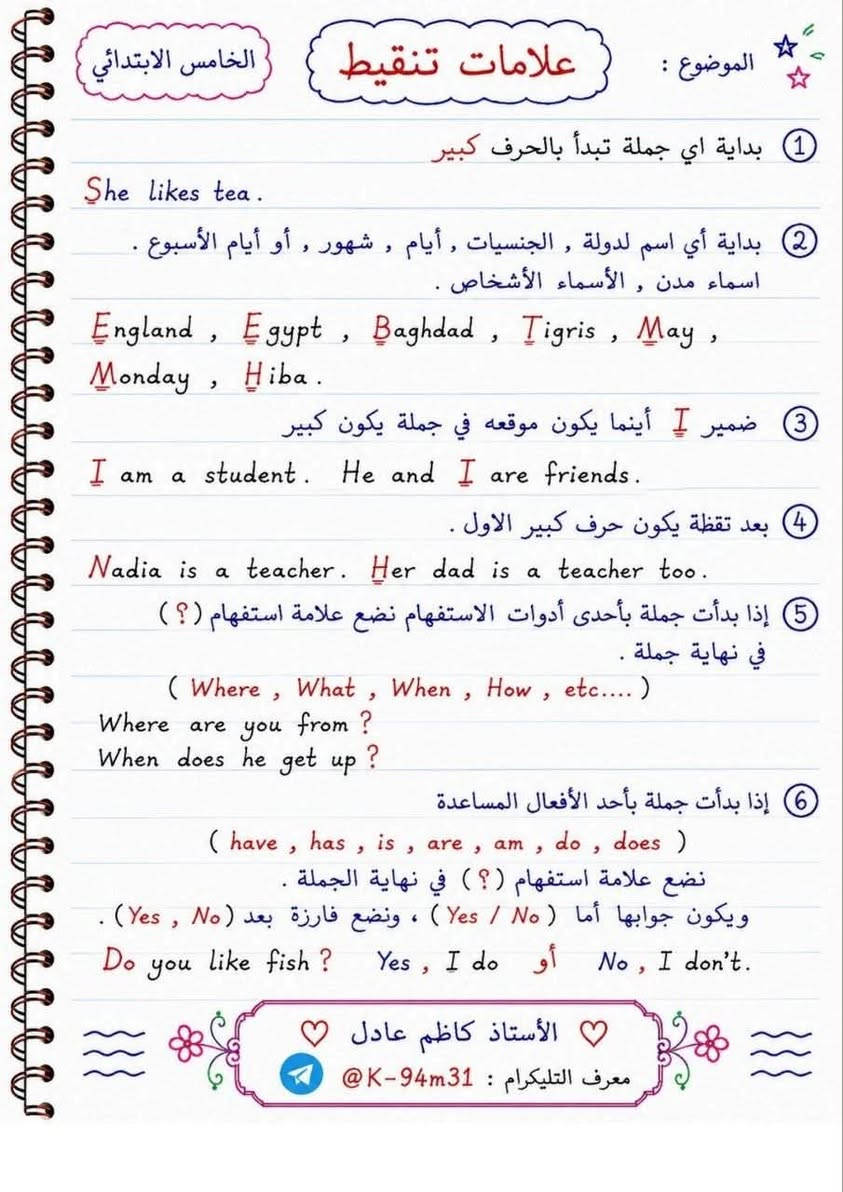 الموضوع : علامات تنقيط الخامس الابتدائي
① بداية اي جملة تبدأ بالحرف كبير
She likes tea .
② بداية أي اسم لدولة , الجنسيات , أيام , شهور , أو أيام الأسبوع .
اسماء مدن , الأسماء الأشخاص .
England , Egypt , Baghdad , Tigris , May ,
Monday , Hiba .
③ ضمير I أينما يكون موقعه في جملة يكون كبير
I am a student . He and I are friends .
④ بعد تقظة يكون حرف كبير الاول .
Nadia is a teacher . Her dad is a teacher too .
⑤ إذا بدأت جملة بأحدى أدوات الاستفهام نضع علامة استفهام (؟)
في نهاية جملة .
( Where , What , When , How , etc.... )
Where are you from ?
When does he get up ?
⑥ إذا بدأت جملة بأحد الأفعال المساعدة
( have , has , is , are , am , do , does )
نضع علامة استفهام (؟) في نهاية الجملة .
ويكون جوابها أما (Yes / No) ، ونضع فارزة بعد (Yes , No) .
Do you like fish ? Yes , I do أو No , I don't .
الأستاذ كاظم عادل
معرف التليكرام : @K-94m31